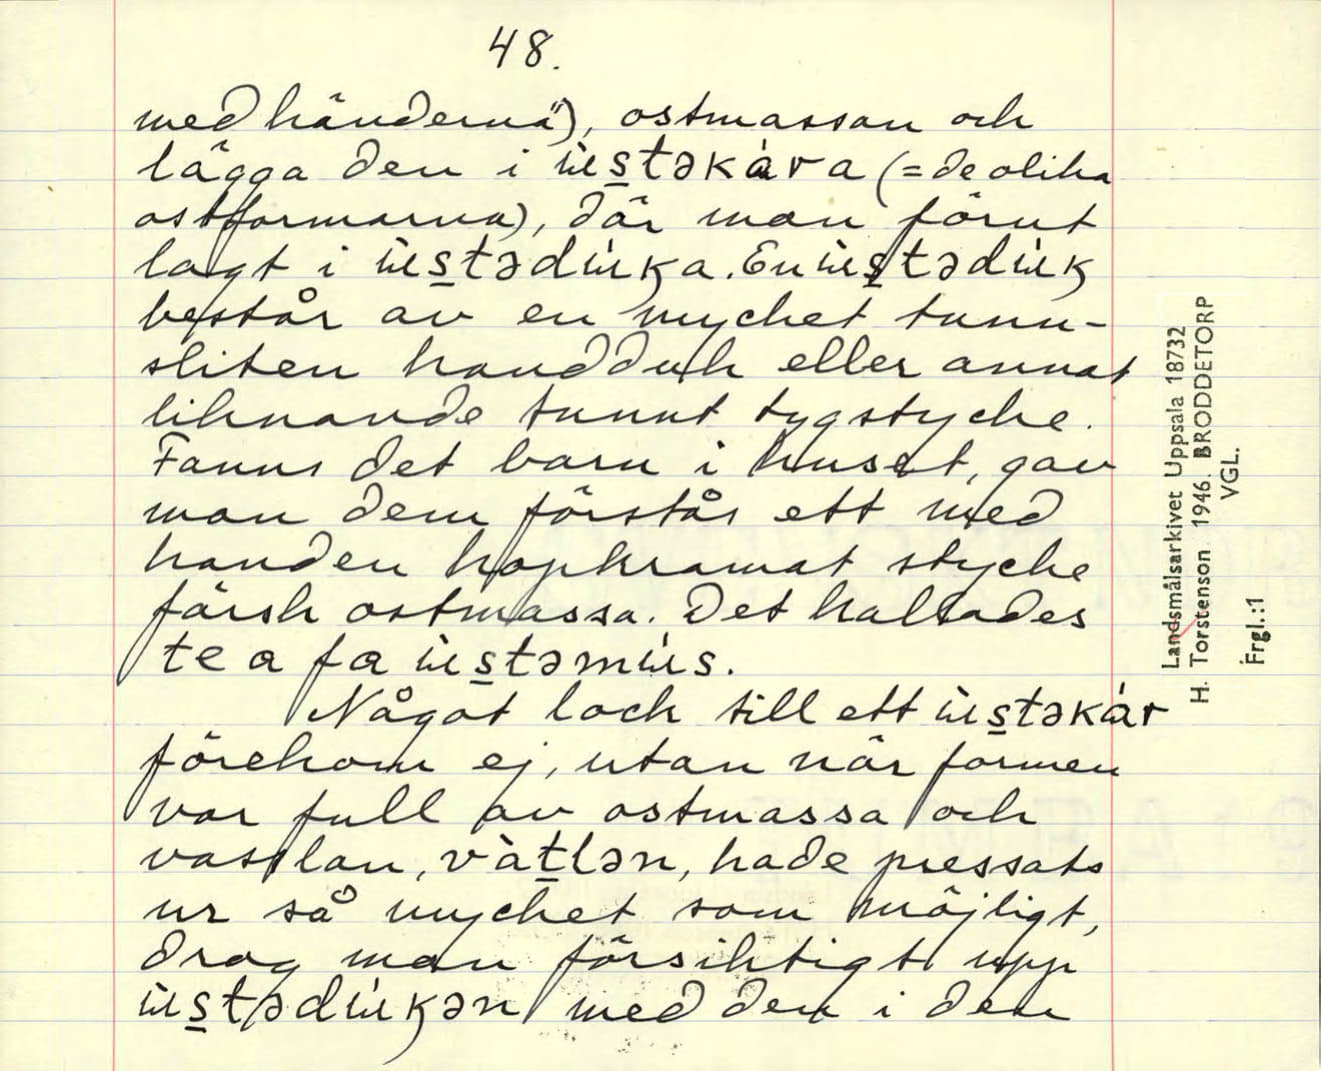 48.
med händerna"), ostmassan och
lägga den i ùs̲təkára (= de olika
ostformarna), där man förut
lagt i ùs̲tədúka. En ùs̲tədúk
består av en mycket tunn-
sliten handduk eller annat
liknande tunnt tygstycke.
Fanns det barn i huset, gav
man dem förstås ett med
handen hopkramat stycke
färsk ostmassa. Det kallades
te a fa ùs̲təmús.
Något lock till ett ùs̲təkár
förekom ej, utan när formen
var full av ostmassa och
vasslan, vàt̲lən, hade pressats
ur så mycket som möjligt,
drog man försiktigt upp
ùs̲tədúkən med den i den
Landsmålsarkivet Uppsala 18732
H. Torstenson 1946. BRODDETORP
VGL.
Frgl.:1